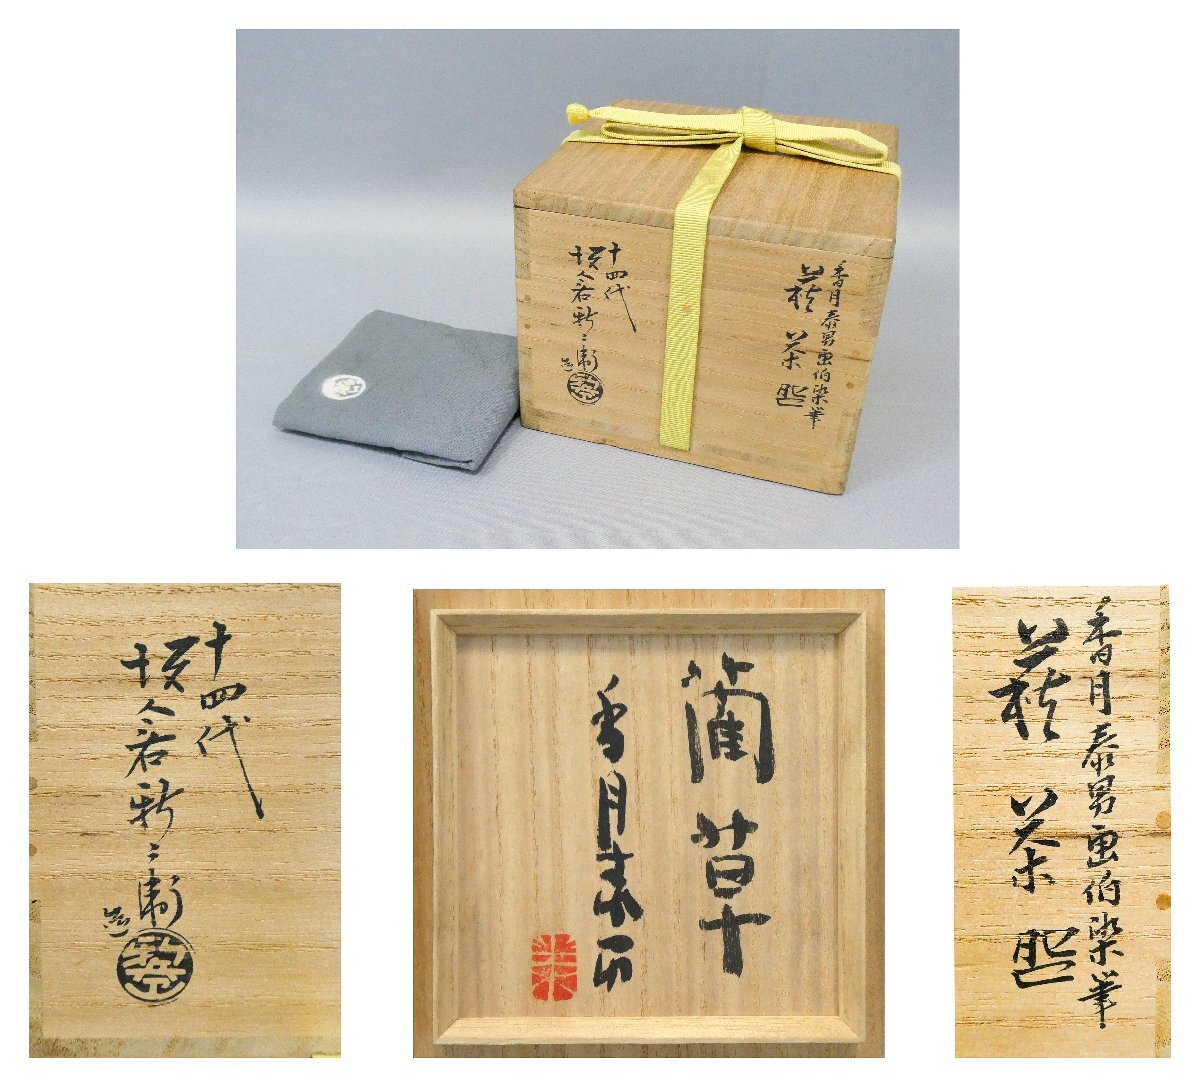 香月泰男画伯染筆
萩
茶
盌
十四代
坂倉新兵衛
造
十四代
坂倉新兵衛
造
蘭草
香月泰男
香月泰男画伯染筆
萩
茶
盌